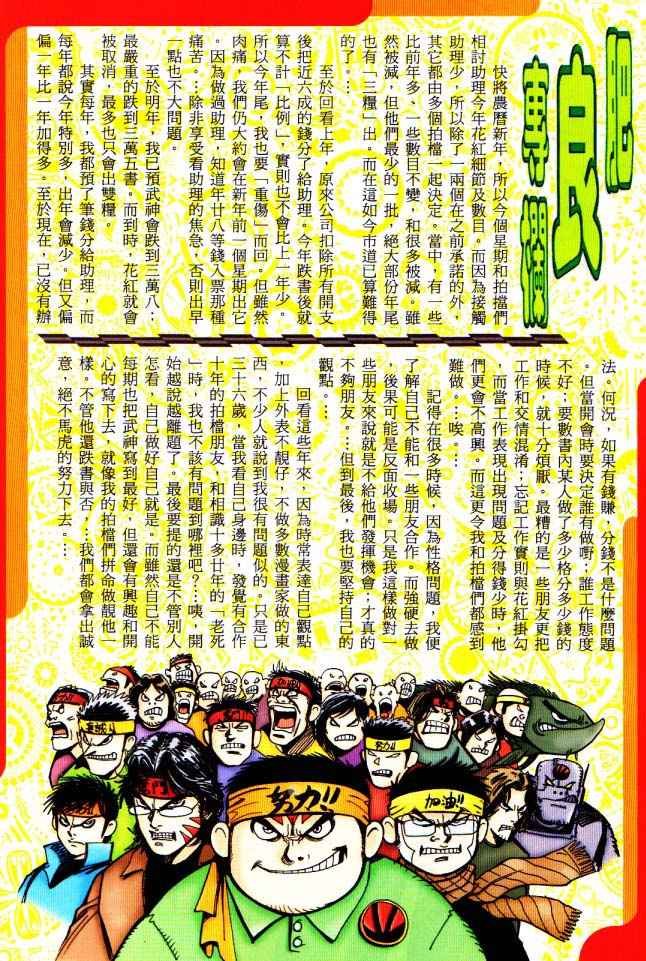 肥良專欄
快將農曆新年，所以今個星期和拍檔們
相討助理今年花紅細節及數目。而因為接觸
助理少，所以除了一兩個在之前承諾的外，
其它都由多個拍檔一起決定。當中，有一些
比前年多、一些數目不變，和很多被減。雖
然被減，但他們最少的一批，絕大部份年尾
也有「三糧」出。而在這如今市道已算難得
的了。…
至於回看上年，原來公司扣除所有開支
後把近六成的錢分了給助理。今年跌書後就
算不計「比例」，實則也不會比上一年少。
所以今年尾，我也要「重傷」而回。但雖然
肉痛，我們仍大約會在新年前一個星期出它
。因為做過助理，知道年廿八等錢入票那種
痛苦。…除非享受看助理的焦急，否則出早
一點也不大問題。
至於明年，我已預武神會跌到三萬八；
最嚴重的跌到三萬五書。而到時，花紅就會
被取消，最多也只會出雙糧。
其實每年，我都預了筆錢分給助理，而
每年都說今年特別多，出年會減少。但又偏
偏一年比一年加得多。至於現在，已沒有辦
法。何況，如果有錢賺，分錢不是什麼問題
。但當開會時要決定誰有做嘢；誰工作態度
不好；要數書內某人做了多少格分多少錢的
時候，就十分煩厭。最糟的是一些朋友更把
工作和交情混淆；忘記工作實則與花紅掛勾
，而當工作表現出現問題及分得錢少時，他
們更會不高興。而這更令我和拍檔們都感到
難做。…唉。…
記得在很多時候，因為性格問題，我便
了解自己不能和一些朋友合作。而強硬去做
，後果可能是反面收場。只是我這樣做對一
些朋友來說就是不給他們發揮機會；才真的
不夠朋友。…但到最後，我也要堅持自己的
觀點。…
回看這些年來，因為時常表達自己觀點
，加上外表不靚仔，不做多數漫畫家做的東
西，不少人就說到我很有問題似的。只是已
三十六歲，當我看自己身邊時，發覺有合作
十年的拍檔朋友，和相識十多廿年的「老死
」時，我也不該有問題到哪裡吧？…咦，開
始越說越離題了。最後要提的還是不管別人
怎看，自己做好自己就是。而雖然自己不能
每期也把武神寫到最好，但還會有興趣和開
心的寫下去，就像我的拍檔們拼命做靚他一
樣。不管他還跌書與否，…我們都會拿出誠
意，絕不馬虎的努力下去。…
努力!!
加油!!
努力!!
努力